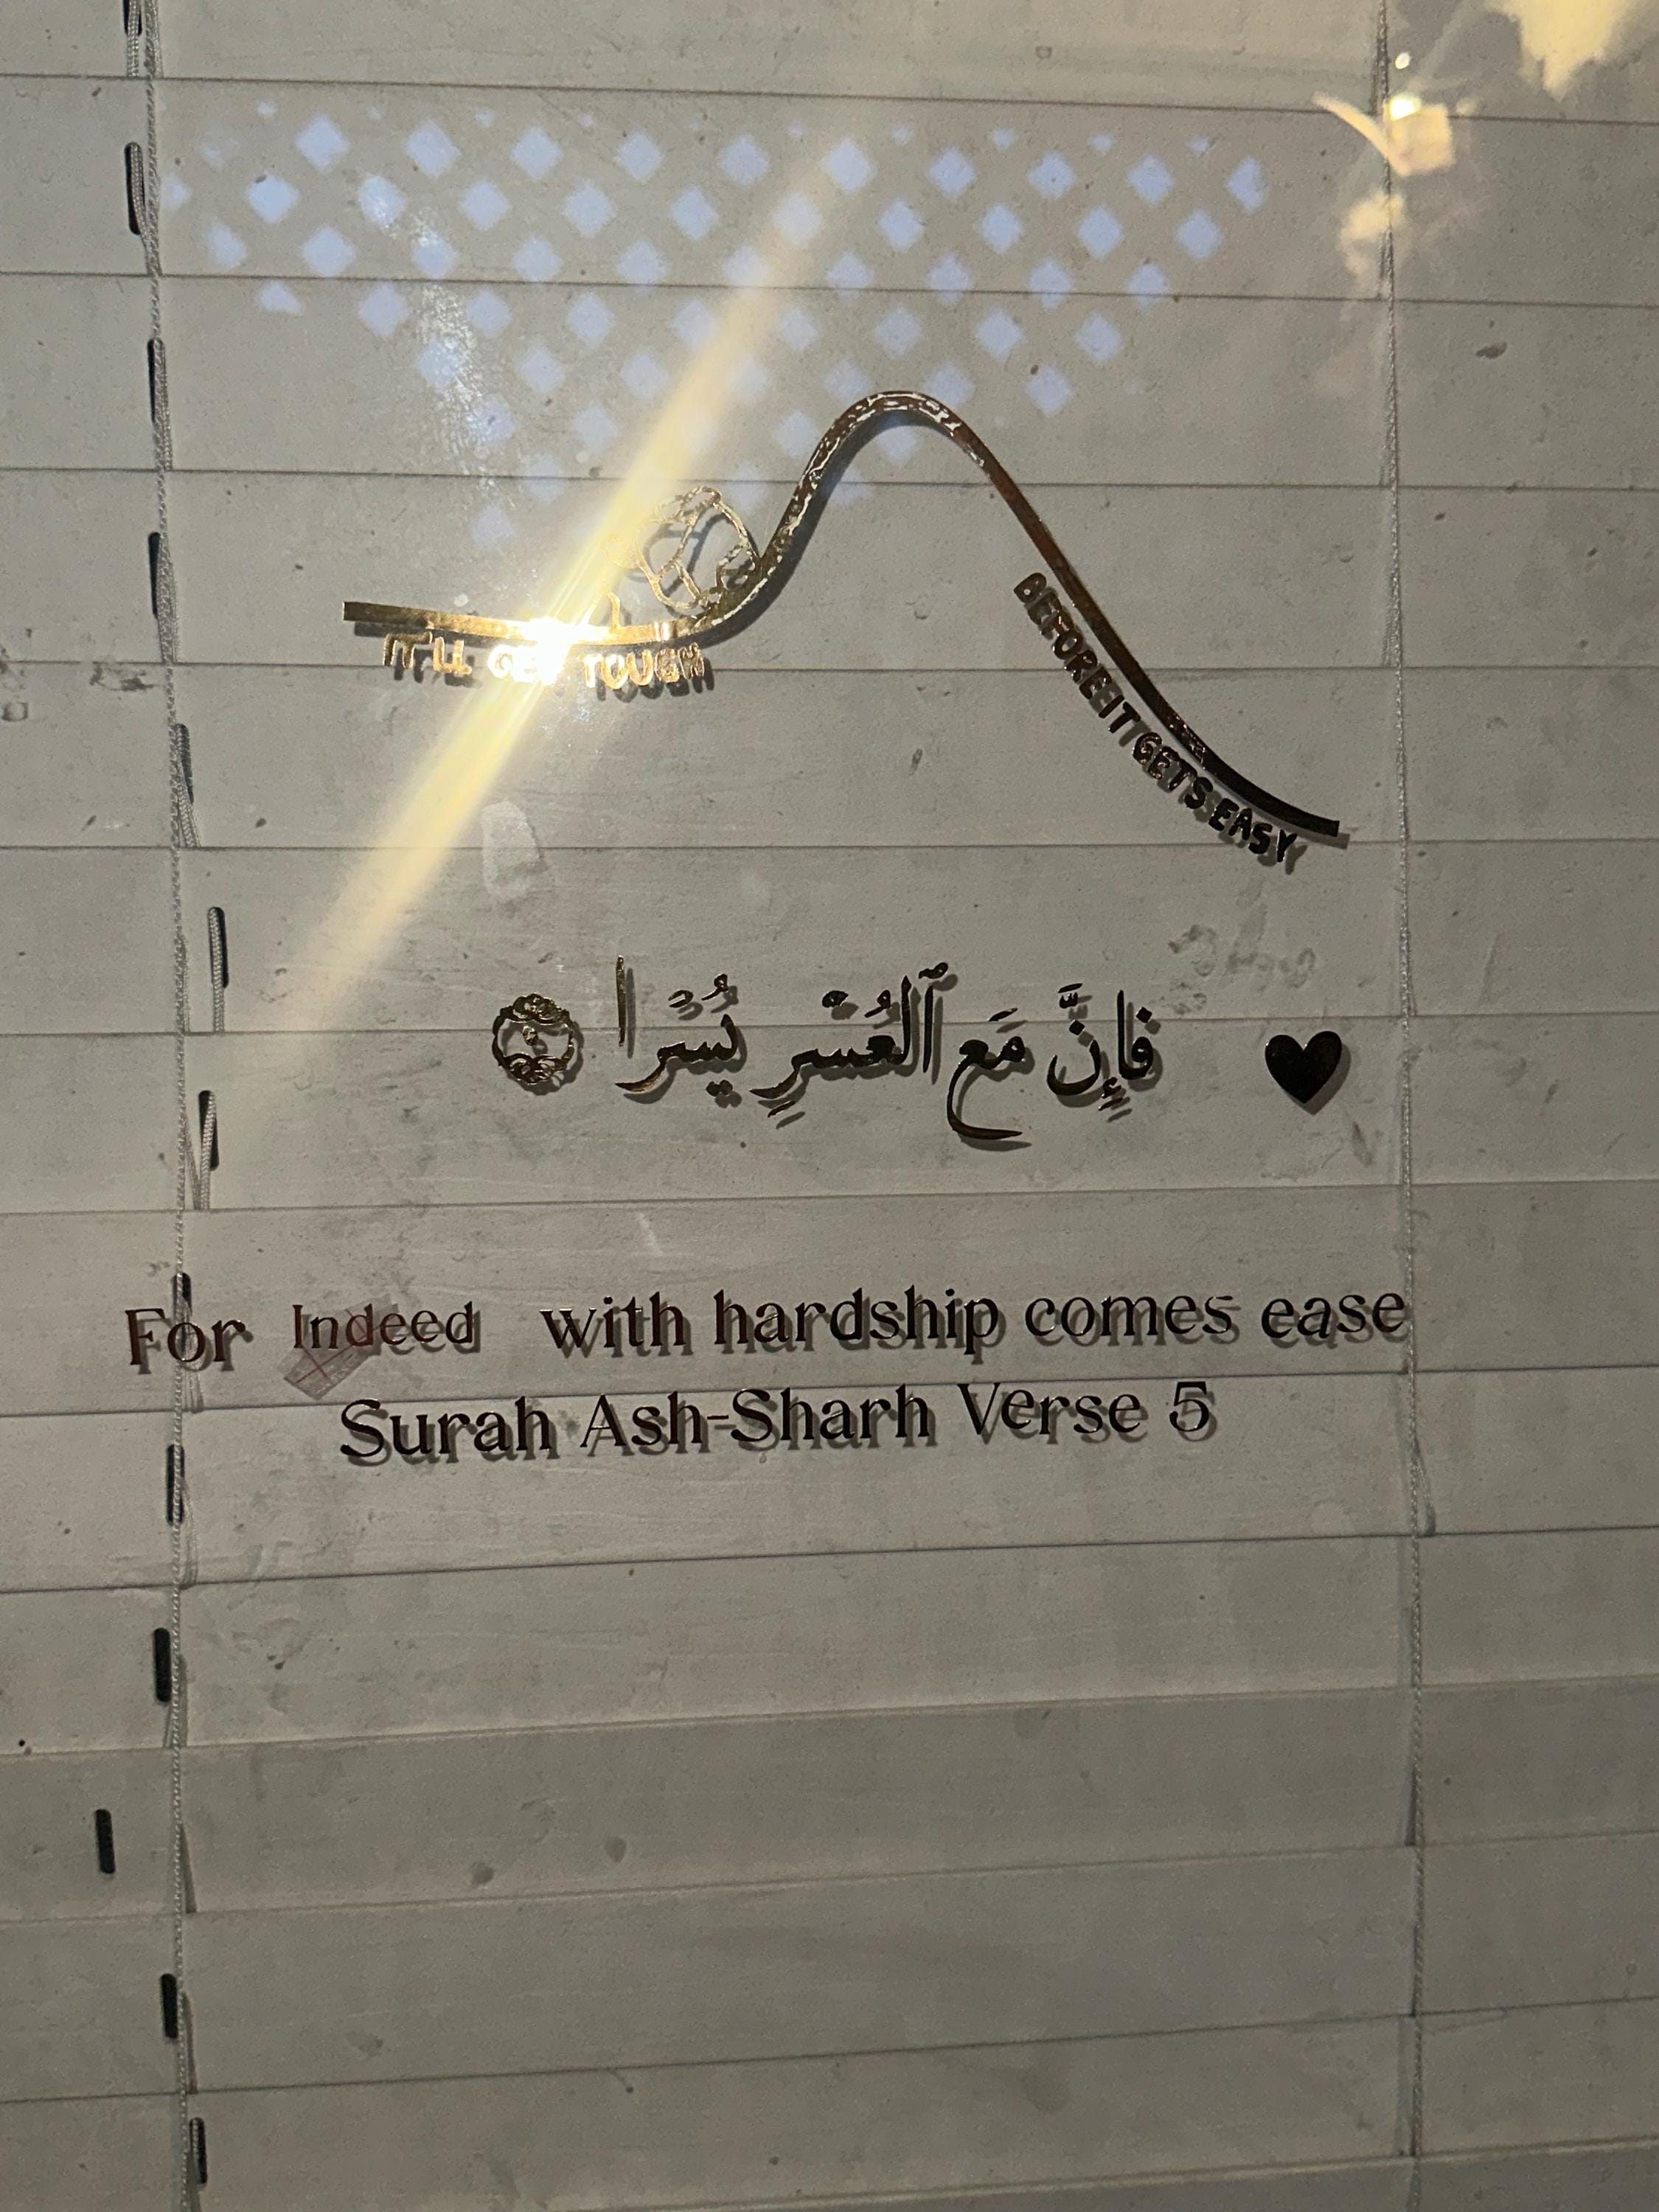 IT'LL GET TOUGH
BEFORE IT GETS EASY
فَإِنَّ مَعَ ٱلْعُسْرِ يُسْرًا
For Indeed with hardship comes ease
Surah Ash-Sharh Verse 5